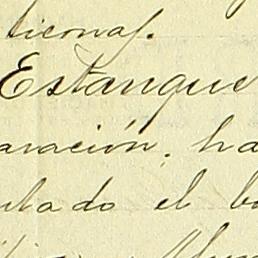 tiernas.
Estanque
aración, ha
ulado el ba